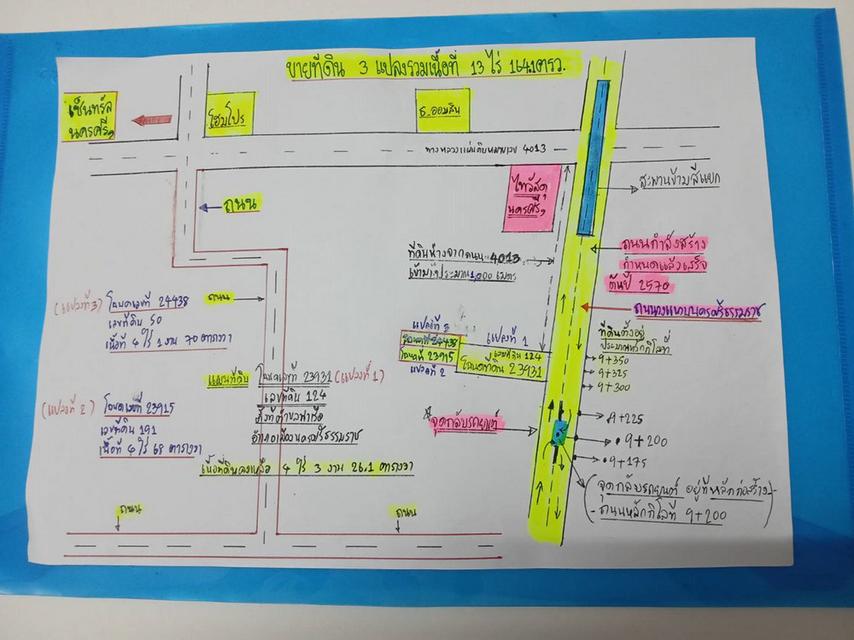 ขายที่ดิน 3 แปลงรวมเนื้อที่ 13 ไร่ 164.1 ตรว.
เซ็นทรัล
นครศรีฯ
โฮมโปร
ธ.ออมสิน
ทางหลวงแผ่นดินหมายเลข 4013
ไทวัสดุ
นครศรีฯ
สะพานข้ามสี่แยก
ถนน
ที่ดินห่างจากถนน 4013
เข้ามาประมาณ 1,000 เมตร
ถนนกำลังสร้าง
กำหนดแล้วเสร็จ
ต้นปี 2570
ถนน
(แปลงที่ 3) โฉนดเลขที่ 24438
เลขที่ดิน 50
เนื้อที่ 4 ไร่ 1 งาน 70 ตารางวา
ที่ดินตั้งอยู่
ประมาณหลักกิโลที่
9+350
9+325
9+300
แปลงที่ 3
แปลงที่ 1
โฉนดที่ 24438
โฉนดที่ 23915
แปลงที่ 2
เลขที่ดิน 124
โฉนดที่ดิน 23931
แผนที่ดิน
โฉนดเลขที่ 23931 (แปลงที่ 1)
เลขที่ดิน 124
อำเภอเมืองนครศรีธรรมราช
เนื้อที่ดินคงเหลือ 4 ไร่ 3 งาน 26.1 ตารางวา
(แปลงที่ 2) โฉนดเลขที่ 23915
เลขที่ดิน 191
เนื้อที่ 4 ไร่ 68 ตารางวา
จุดกลับรถยนต์
9+225
9+200
9+175
(จุดกลับรถยนต์ อยู่ที่หลักก่อสร้าง)
ถนนหลักกิโลที่ 9+200
ถนน
ถนน